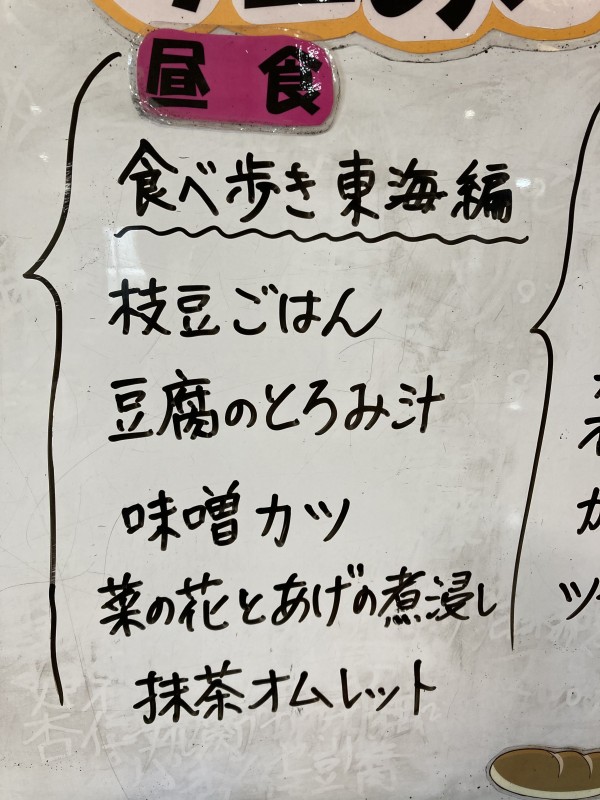 昼食
食べ歩き東海編
枝豆ごはん
豆腐のとろみ汁
味噌カツ
菜の花とあげの煮浸し
抹茶オムレット